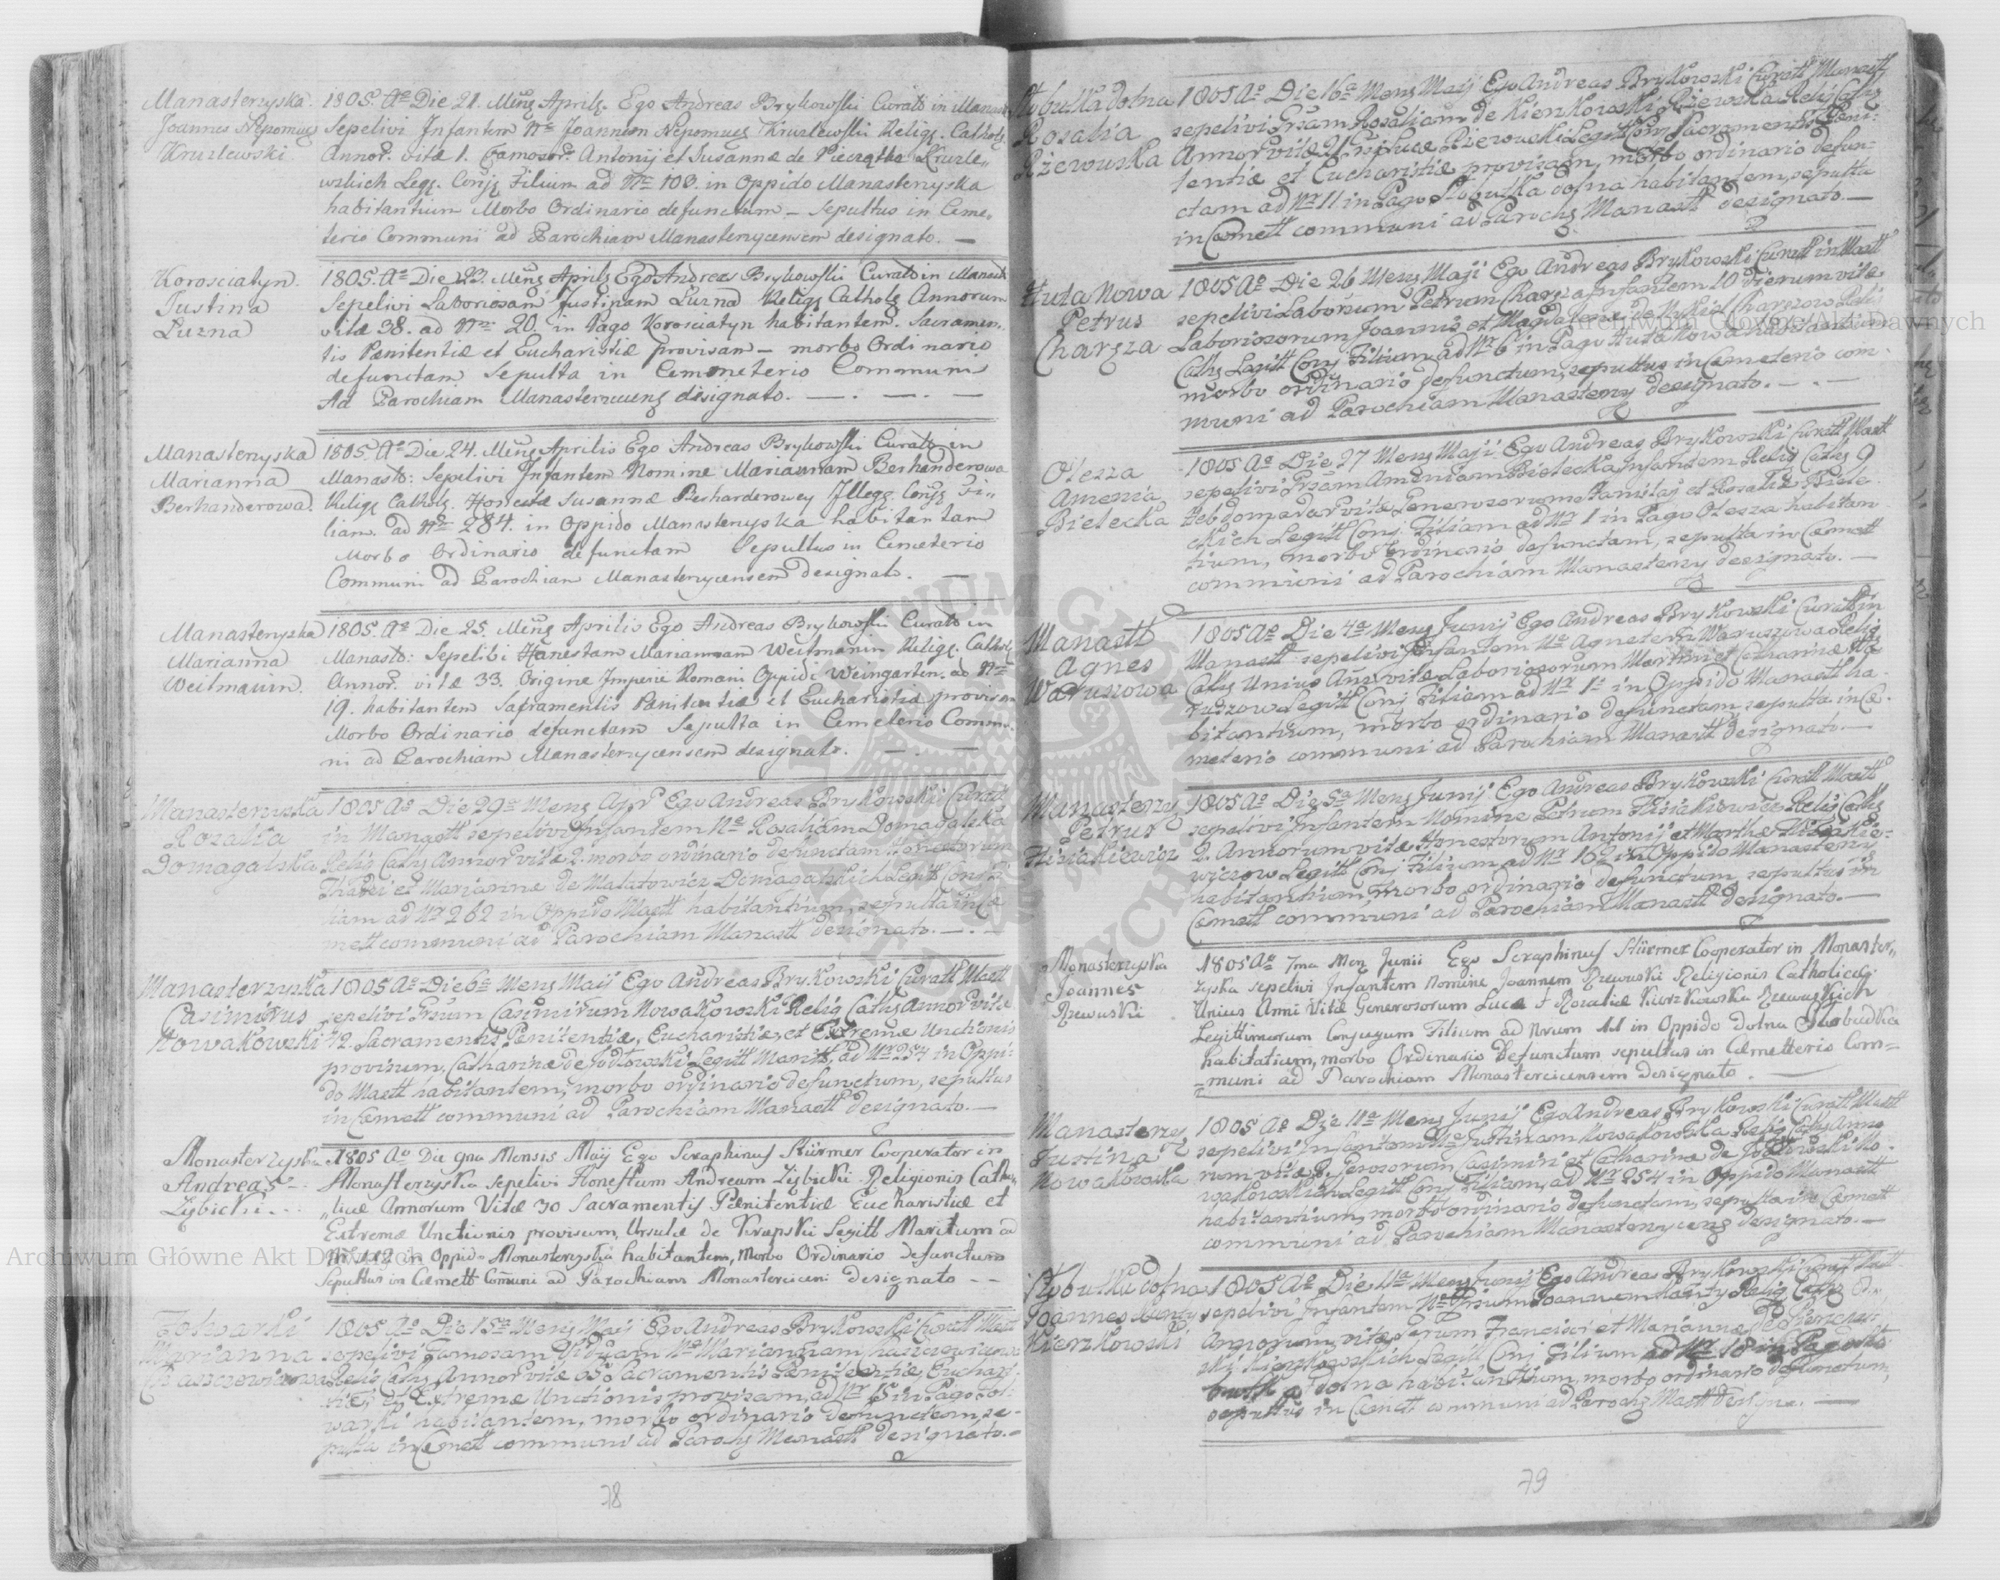 Manasterzyska.
Joannes Nepomuc
Kruzlewski.
1805. Aº Die 21. Mens Aprilis. Ego Andreas Brykowski Curatt in Manast
Sepelivi Infantem Nne Joannem Nepomuc Kruzlewski Religs. Cathols.
Annor. vitæ 1. Famosor. Antonij et Susannæ de Pieczątka Kruzle,,
wskich Legs. Conjs Filium ad Nrº 103. in Oppido Manasterzyska
habitantium Morbo Ordinario defunctum – Sepultus in Ceme,,
terio Communi ad Parochiam Manasterzycensem designato. —
Korosciatyn.
Justina
Luzna
1805. Aº Die 23. Mens Aprils Ego Andreas Brykowski Curatt in Manast
Sepelivi Laboriosam Justinam Luzna Religs Cathols Annorum
vitæ 38. ad Nro 20. in Pago Korosciatyn habitantem. Sacramen,,
tis Pænitentiæ et Eucharistiæ provisam – morbo Ordinario
defunctam Sepulta in Cemeneterio Communi
Ad Parochiam Manasterzycens designato. — . — . —
Manasterzyska
Marianna
Berhanderowa.
1805. Aº Die 24. Mens Aprilis Ego Andreas Brykowski Curatt in
Manast: Sepelivi Infantem Nomine Mariannam Berhanderowa
Religs Cathols. Honestæ Susannæ Berharderowey Illegs. Conjs Fi,,
liam. ad Nro 284. in Oppido Manasterzyska habitantem
Morbo Ordinario defunctam Sepultus in Cemeterio
Communi ad Parochiam Manasterzycensem designato. —
Manasterzyska
Marianna
Weitmanin.
1805. Aº Die 25. Mens Aprilis Ego Andreas Brykowski Curatt in
Manast: Sepelibi Honestam Mariannam Weitmanin Religs. Cathols
Annor. vitæ 33. Origine Imperii Romani Oppidi Weingartin. ad Nro
19. habitantem Saframentis Pænitentiæ et Eucharistiæ provisam
Morbo Ordinario defunctam Sepulta in Cemeterio Commu,
ni ad Parochiam Manasterzycensem designato. — . —
Manasterzyska
Rozalia
Domagalska
1805 Aº Die 29na Mens Apr Ego Andreas Brykowski Curatt
in Manastt sepelivi Infantem Nne Rosaliam Domagalska
Relig Cathz Annor vitæ 2. morbo ordinario defunctam Honestorum
Thadei et Mariannæ de Malatowicz Domagalskich Legitt Conj Fi
liam ad Nr 262 in Oppido Mastt habitantium, sepulta in Cæ
mett communi ad Parochiam Manastt designato. — . —
Manasterzyska
Casimirus
Nowakowski
1805 Aº Die 6ta Mens Maij Ego Andreas Brykowski Curatt Mastt
sepelivi Grsum Casimirum Nowakowski Relig Cathz Annor vitæ
42. Sacramentis Penitentiæ, Eucharistiæ, et Extremæ Unctionis
provisum, Catharinæ de Jodłowski Legitt Maritt, ad Nr 254 in Oppi:
do Mastt habitantem, morbo ordinario defunctum, sepultus
in Cæmett communi ad Parochiam Manastt designato. —
Monasterzyska
Andreas
Zybicki . . .
1805 Aº Die 9na Mensis Maij Ego Seraphinus Stürmer Cooperator in
Monasterzyska sepelivi Honestum Andream Zybicki Religionis Catho,,
,,licæ Annorum Vitæ 30 Sacramentis Pænitentiæ Eucharistiæ et
Extremæ Unctionis provisum, Ursulæ de Krapski Legitt Maritum ad
Nr. 112 in Oppido Monasterzyska habitantem, Morbo Ordinario defunctum
Sepultus in Cæmett Comuni ad Parochiam Monasterciceni designato - -
Folwarki
Marianna
1805 Aº Die 15ta Mens Maij Ego Andreas Brykowski Curatt Mastt
sepelivi Famosam Viduam Nne Mariannam
Relig Cathz Annor vitæ 85 Sacramentis Pænitentiæ, Euchari:
tiæ, et Extremæ Unctionis provisam, ad Nr 15 in Pago Fol:
warki habitantem, morbo ordinario defunctam, se-
pulta in Cæmett communi ad Parochz Manastt designato. —
78
Słobutka dolna
Rosalia
Rzewuska
1805 Aº Die 16ta Mens Maij Ego Andreas Brykowski Curatt Manastt
sepelivi Grsam Rosaliam de Kierzkowski Rzewuska Relig Cathz
Annor vitæ 21 Lucæ Rzewuski Legitt Conj Sacramentis Peni:
tentiæ et Eucharistiæ provisam, morbo ordinario defun:
ctam ad Nr 11 in Pago Słobutka dolna habitantem, sepulta
in Cæmett communi ad Parochz Manastt designato. —
Huta Nowa
Petrus
Charęza
1805 Aº Die 26 Mens Maji Ego Andreas Brykowski Curatt in Mastt
sepelivi Laborium Petrum Charęza Infantem 10 dierum vitæ
Laboriosorum Joannis et Magdalenæ de Charęzow Relig
Cathz Legitt Conj Filium ad Nr 6 in Pago Huta Nowa habitantium
morbo ordinario defunctum, sepultus in Cæmeterio com:
muni ad Parochiam Manasterz designato. — . —
Olesza
Amenia
Bielecka
1805 Aº Die 27 Mens Maji Ego Andreas Brykowski Curatt Mastt
sepelivi Grsam Ameniam Bielecka Infantem Relig Cathz 9
Hebdomadar vitæ Generosorum Stanislaj et Rosaliæ Biele:
ckich Legitt Conj: Filiam ad Nr 1 in Pago Olesza habitan:
tium, morbo ordinario defunctam, sepulta in Cæmett
communi ad Parochiam Manasterz designato. —
Manastt
Agnes
Waruszowa
1805 Aº Die 4ta Mens Junij Ego Andreas Brykowski Curatt in
Manastt sepelivi Infantem Nne Agnetem Waruszowa Relig
Cathz Unius Anni vitæ Laboriosorum Martini et Catharinæ Wa
ruszow Legitt Conj Filiam ad Nr 1º in Oppido Manastt ha:
bitantium, morbo ordinario defunctam, sepulta in Cæ:
meterio communi ad Parochiam Manastt designato. —
Manasterz
Petrus
Fizickiewicz
1805 Aº Die 5ta Mens Junij Ego Andreas Brykowski Curatt Mastt
sepelivi Infantem Nomine Petrum Fisickiewicz Relig Cathz
2. Annorum vitæ Honestorum Antonij et Marthæ Fizickie:
wiczow Legitt Conj Filium, ad Nr 162 in Oppido Manasterz
habitantium, morbo ordinario defunctum, sepultus in
Cæmett communi ad Parochiam Manastt designato. —
Monasterzyska
Joannes
Rzewuski
1805 Aº 7ma Men Junii Ego Seraphinus Stürmer Cooperator in Monaster,,
zyska sepelivi Infantem Nomine Joannem Rzewuski Religionis Catholicæ
Unius Anni Vitæ Generosorum Lucæ & Rozaliæ Kierzkowska Rzewuskich
Legittimorum Conjugum Filium ad Nrum 11 in Oppido dolna Słobudka
habitatium, morbo Ordinario Defunctum sepultus in Cæmetterio Com=
=muni ad Parochiam Monastercicensem designato.
Manasterz
Justina
Nowakowska
1805 Aº Die 11ma Mens Junij Ego Andreas Brykowski Curatt Mastt
sepelivi Infantem Nne Justinam Nowakowska Relig Cathz Anno
rum vitæ 2. Generosorum Casimiri et Catharinæ de Jodłowski No:
wakowskich Legitt Conj Filiam, ad Nr 254 in Oppido Manastt
habitantium, morbo ordinario defunctam, sepulta in Cæmett
communi ad Parochiam Manasterzycens designato. —
Słobutka dolna
Joannes Kanty
Kierzkowski
1805 Aº Die Mens Junij Ego Andreas Brykowski Curatt Mastt
sepelivi Infantem Nne Grsum Joannem Kanty Relig Cathz
Annorum vitæ Gerum Francisci et Mariannæ de
Kierzkowskich Legitt Conj Filium ad Nr 18 in Pago Sło:
butka dolna habitantium, morbo ordinario defunctum,
sepultus in Cæmett communi ad Parochz Mastt designa. —
79
Archiwum Główne Akt Dawnych
Archiwum Główne Akt Dawnych
ARCHIWUM GŁÓWNE AKT DAWNYCH